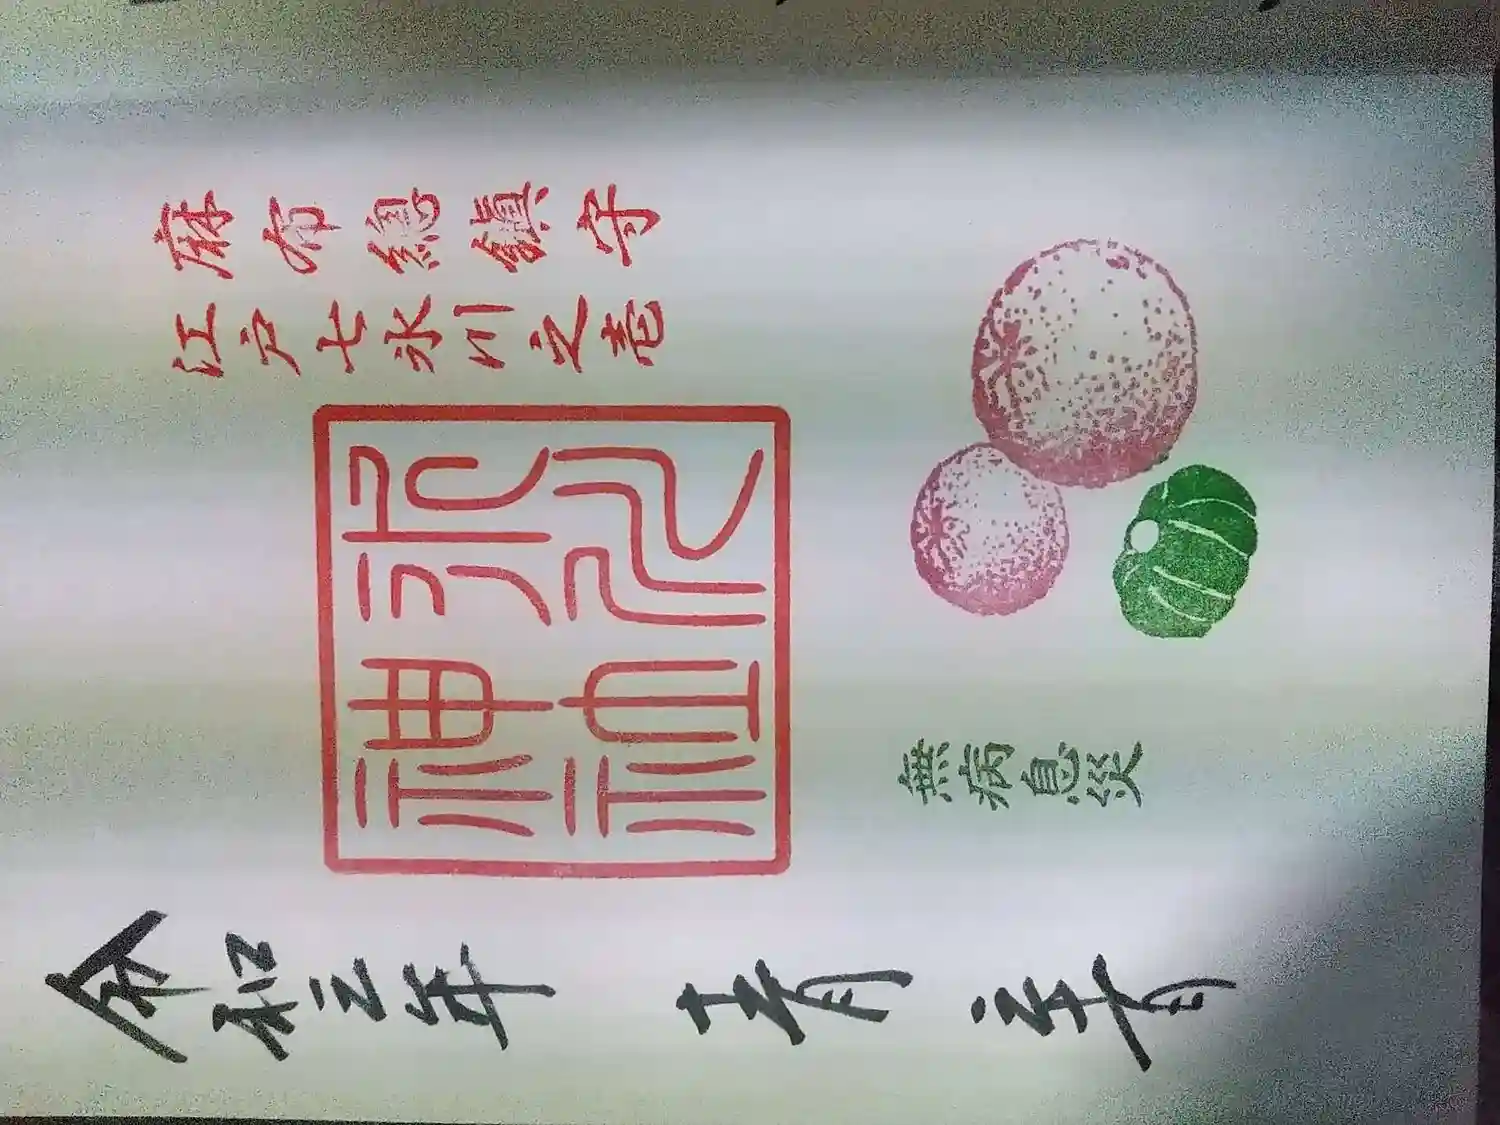 麻布總鎮守
江戸七氷川之壱
氷川
神社
無病息災
令和 年 月